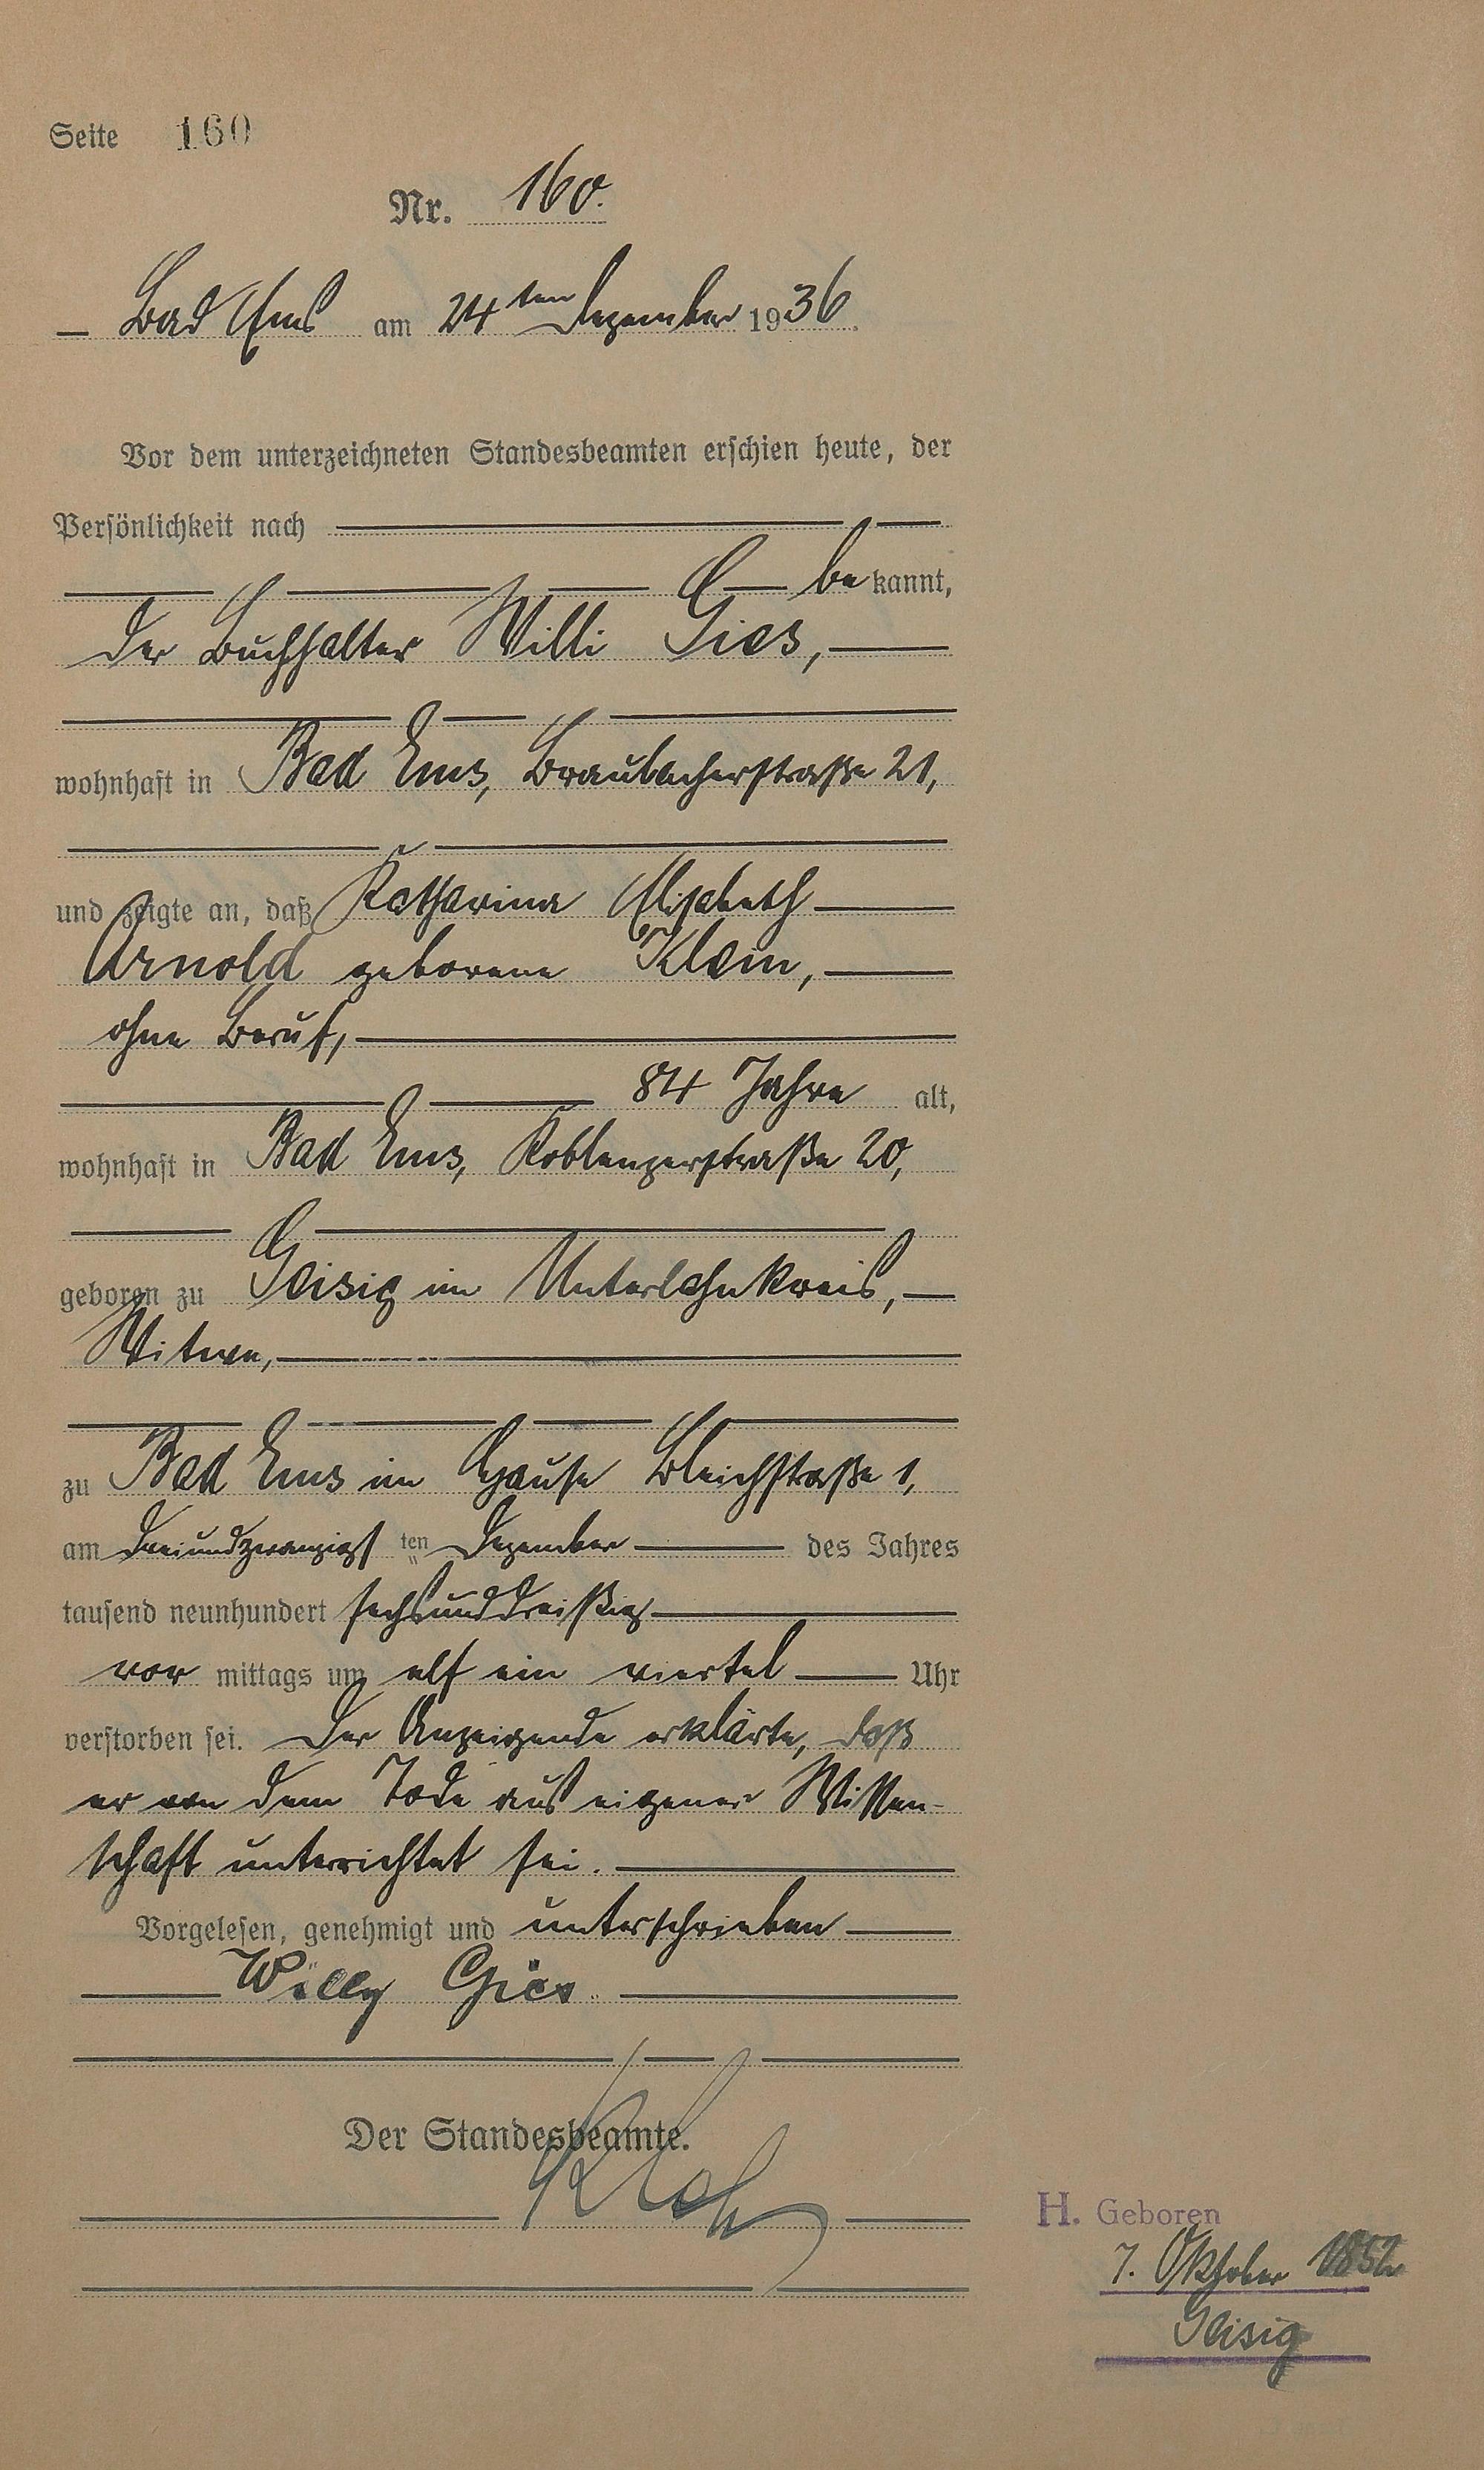 Seite 160
Nr. 160.
Bad Ems am 24ten Dezember 1936.
Vor dem unterzeichneten Standesbeamten erschien heute, der
Persönlichkeit nach
bekannt,
der Buchhalter Willi Gies,
wohnhaft in Bad Ems, Braubacherstraße 21,
und zeigte an, daß Katharina Elisabeth
Arnold geborene Klein,
ohne Beruf,
84 Jahre alt,
wohnhaft in Bad Ems, Koblenzerstraße 20,
geboren zu Geisig im Unterlahnkreis,
Witwe,
zu Bad Ems im Hause Bleichstraße 1,
am dreiundzwanzigsten Dezember des Jahres
tausend neunhundert sechsunddreißig
vor mittags um elf ein viertel Uhr
verstorben sei. Der Anzeigende erklärte, daß
er von dem Tode aus eigener Wissen-
schaft unterrichtet sei.
Vorgelesen, genehmigt und unterschrieben
Willy Gies.
Der Standesbeamte.
H. Geboren
7. Oktober 1852
Geisig